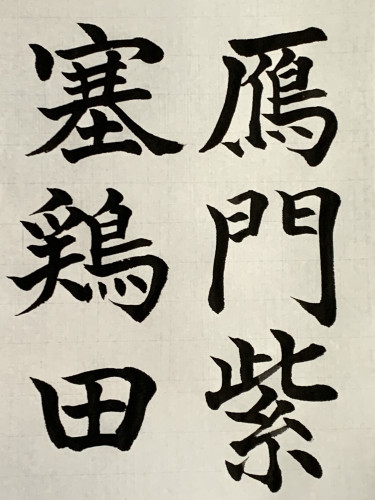 鴈門紫
塞鶏田